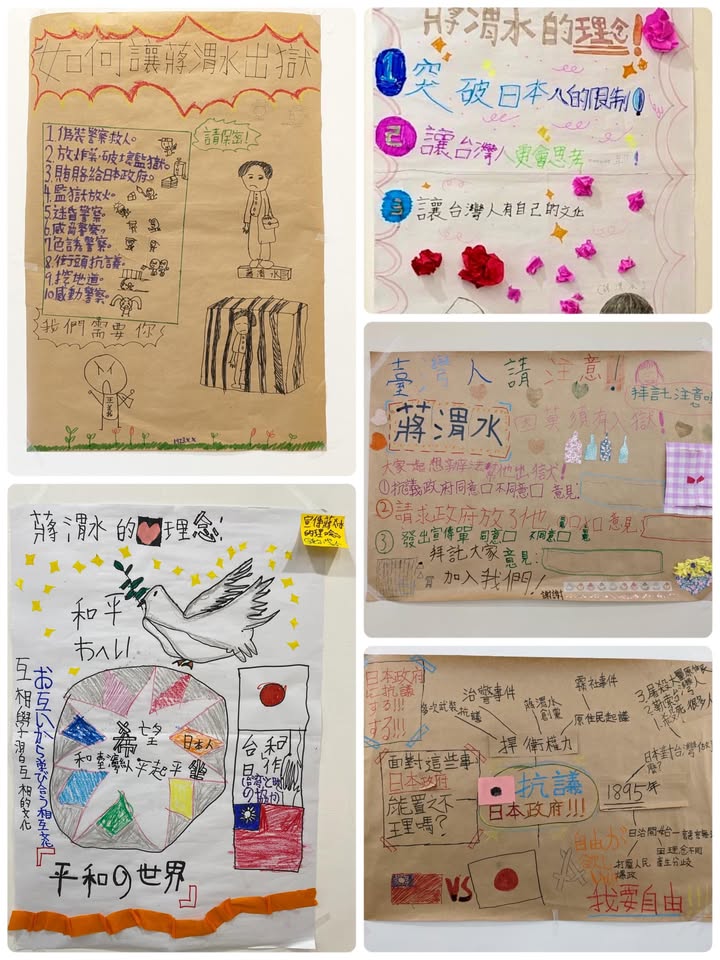 如何讓蔣渭水出獄
1.偽裝警察救人。
2.放炸藥破壞監獄。
3.賄賂給日本政府。
4.監獄放火。
5.迷昏警察。
6.威脅警察。
7.色誘警察。
8.街頭抗議。
9.挖地道。
10.感動警察。
請保密!
蔣渭水
我們需要你
正義
蔣渭水的理念!
1 突破日本人的限制
2 讓台灣人更會思考
3 讓台灣人有自己的文化
臺灣人請注意!!
拜託注意
蔣渭水
因莫須有入獄!
大家一起想辦法幫他出獄!
①抗議政府同意□不同意□ 意見:
②請求政府放了他
意見:
③發出宣傳單 同意□ 不同意□
拜託大家 意見:
加入我們!
謝謝
蔣渭水的理念
和平
互相學習互相的文化
お互いから学び合う相互文化
希望
日本人
和臺灣
平起平
台日和作
平和の世界
日本政府
抗議
する!!!
する!!!
治警事件
霧社事件
武裝抗議
蔣渭水
創黨
原住民起義
捍衛權力
面對這些事
日本政府
能置之不
理嗎?
抗議
日本政府!!!
1895年
日治開始
理念不同
產生分歧
自由が
VS
我要自由!!!